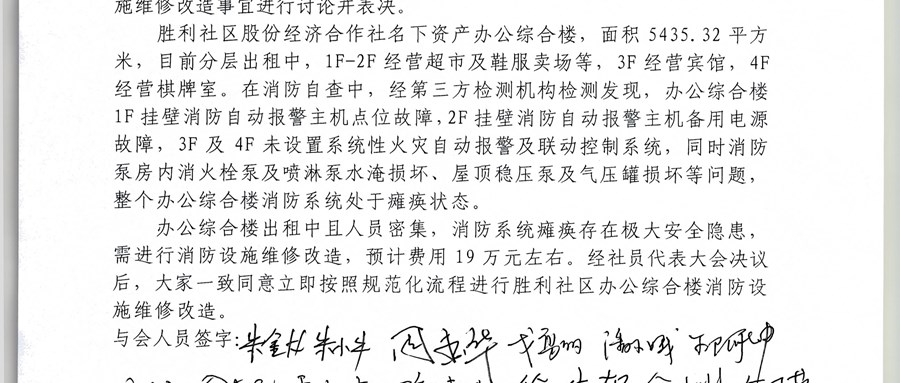 施维修改造事宜进行讨论并表决。
胜利社区股份经济合作社名下资产办公综合楼，面积 5435.32 平方
米，目前分层出租中，1F-2F 经营超市及鞋服卖场等，3F 经营宾馆，4F
经营棋牌室。在消防自查中，经第三方检测机构检测发现，办公综合楼
1F 挂壁消防自动报警主机点位故障，2F 挂壁消防自动报警主机备用电源
故障，3F 及 4F 未设置系统性火灾自动报警及联动控制系统，同时消防
泵房内消火栓泵及喷淋泵水淹损坏、屋顶稳压泵及气压罐损坏等问题，
整个办公综合楼消防系统处于瘫痪状态。
办公综合楼出租中且人员密集，消防系统瘫痪存在极大安全隐患，
需进行消防设施维修改造，预计费用 19 万元左右。经社员代表大会决议
后，大家一致同意立即按照规范化流程进行胜利社区办公综合楼消防设
施维修改造。
与会人员签字：